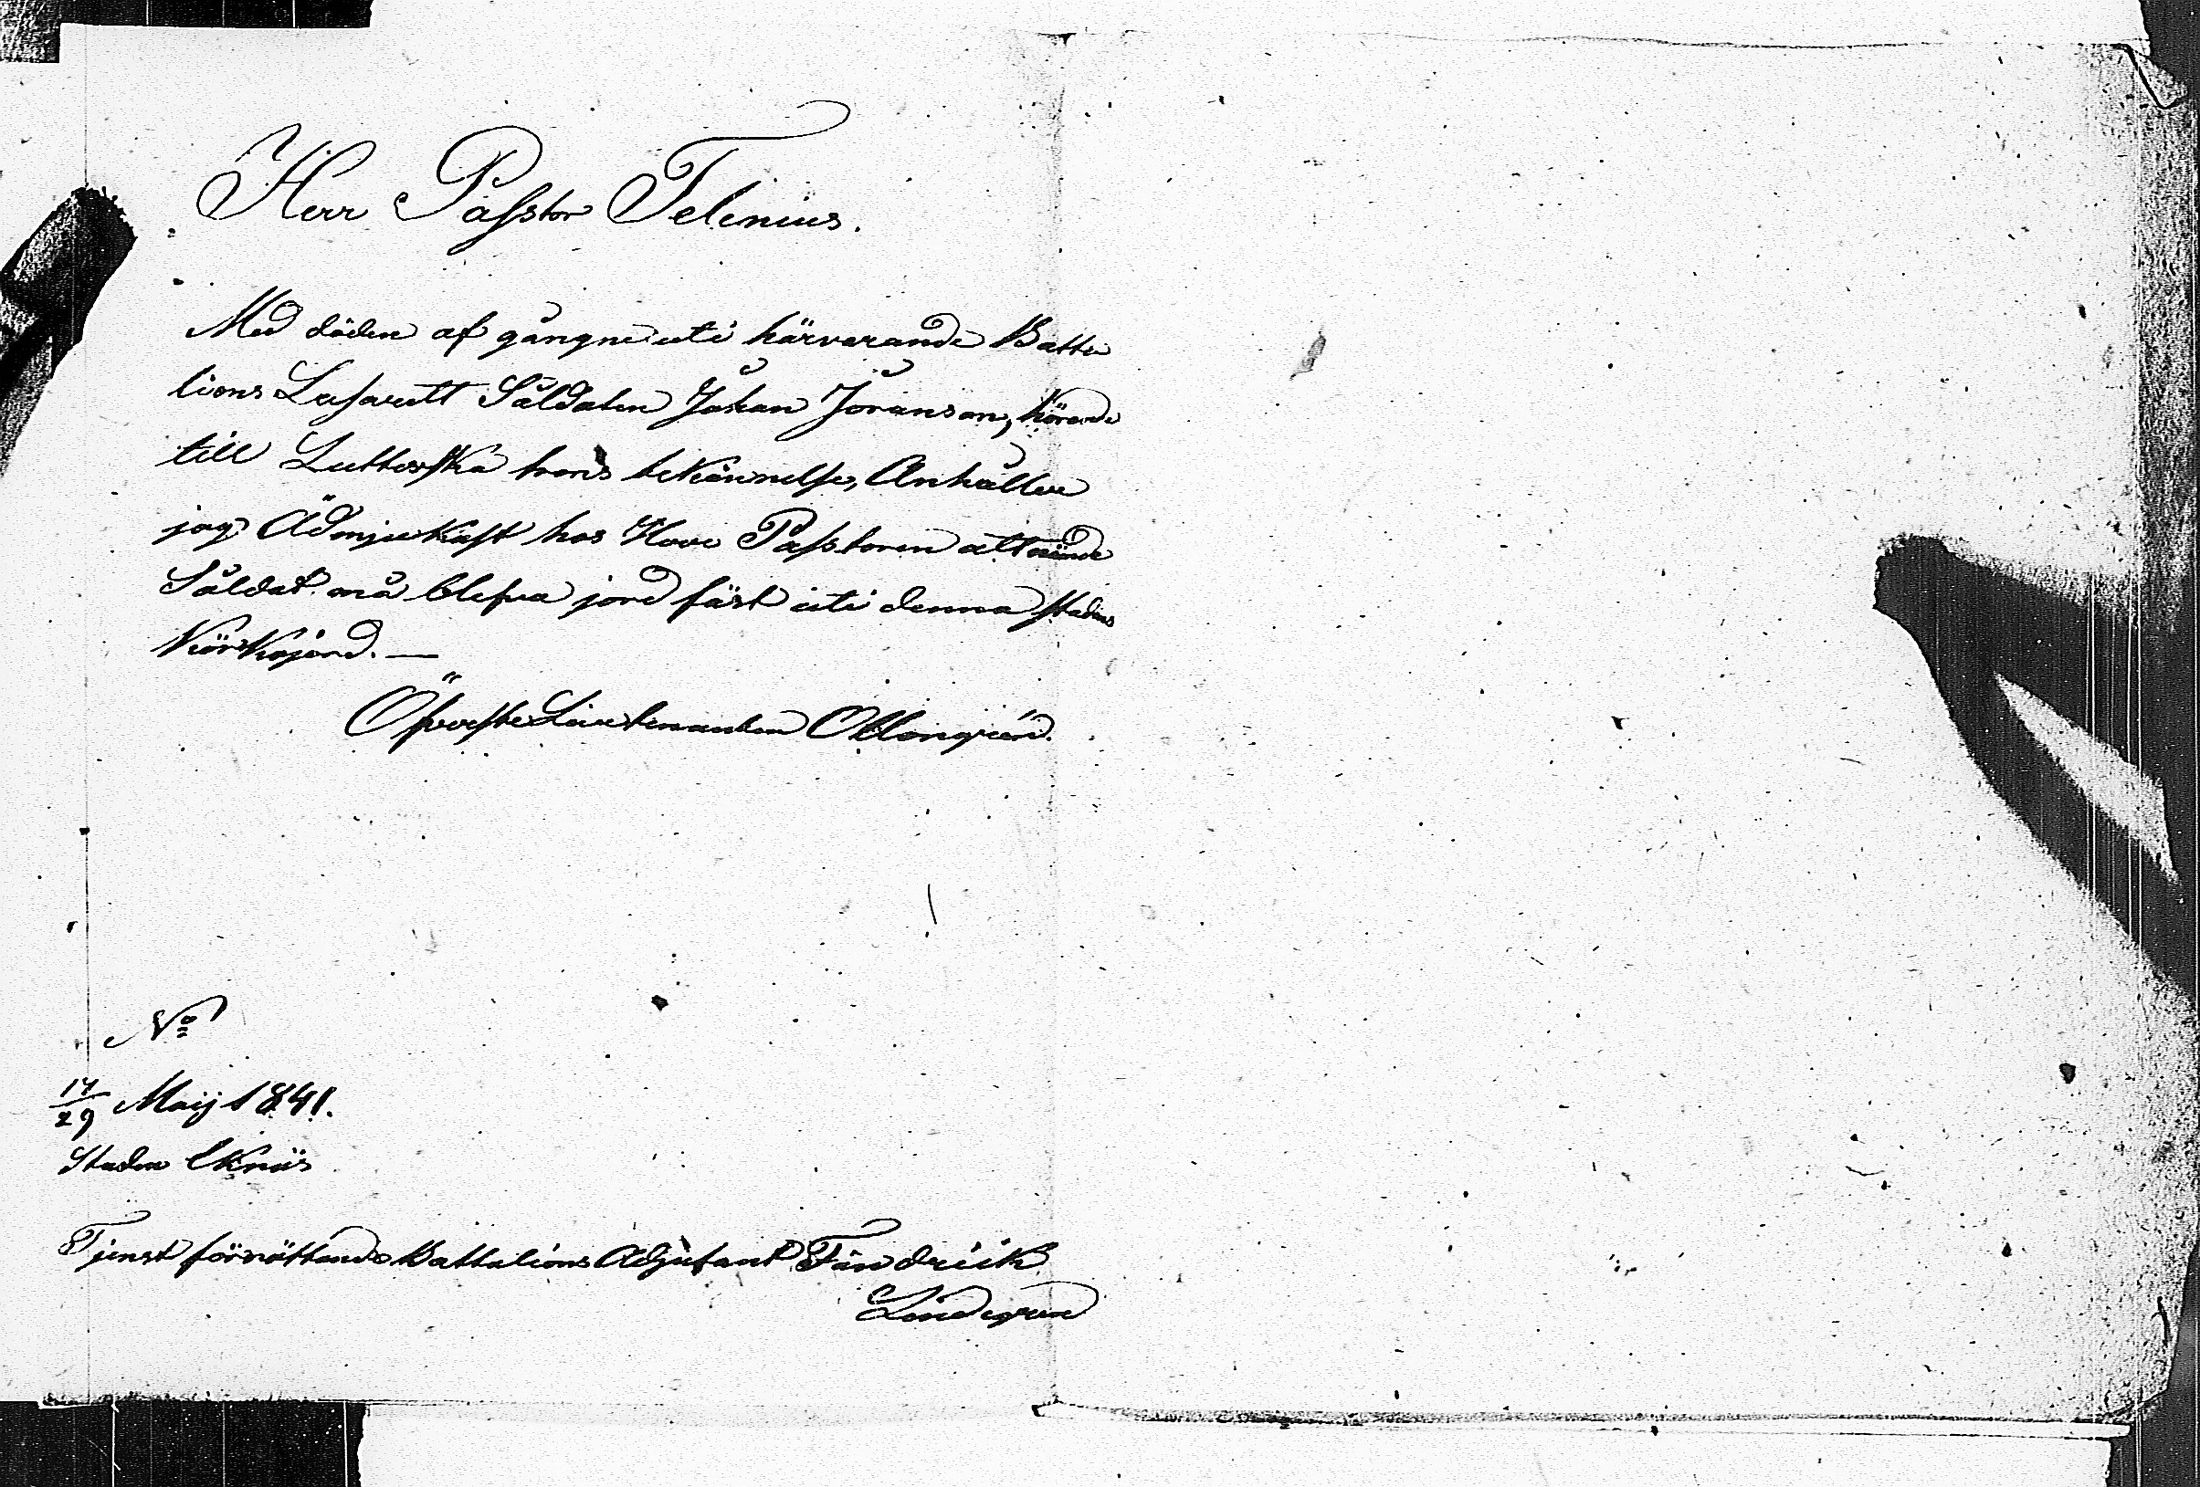 Herr Passtor Telenius.
Med döden af gångne uti härvarande Batta
lions Lasarett Såldaten Johan Jöranson, hörande
till Lutterska trons bekännelse, Anhåller
jag Ödmjukast hos Herr Passtoren att nämde
Såldat må blefva jord fäst uti denna stadens
Körkojord. —
Öfverste Lieutenanten Ollongren.
No
17/29 Maij 1841.
Staden Eknäs
Tjenst förrättande Battalions Adjutant Fändrick
Lindegren